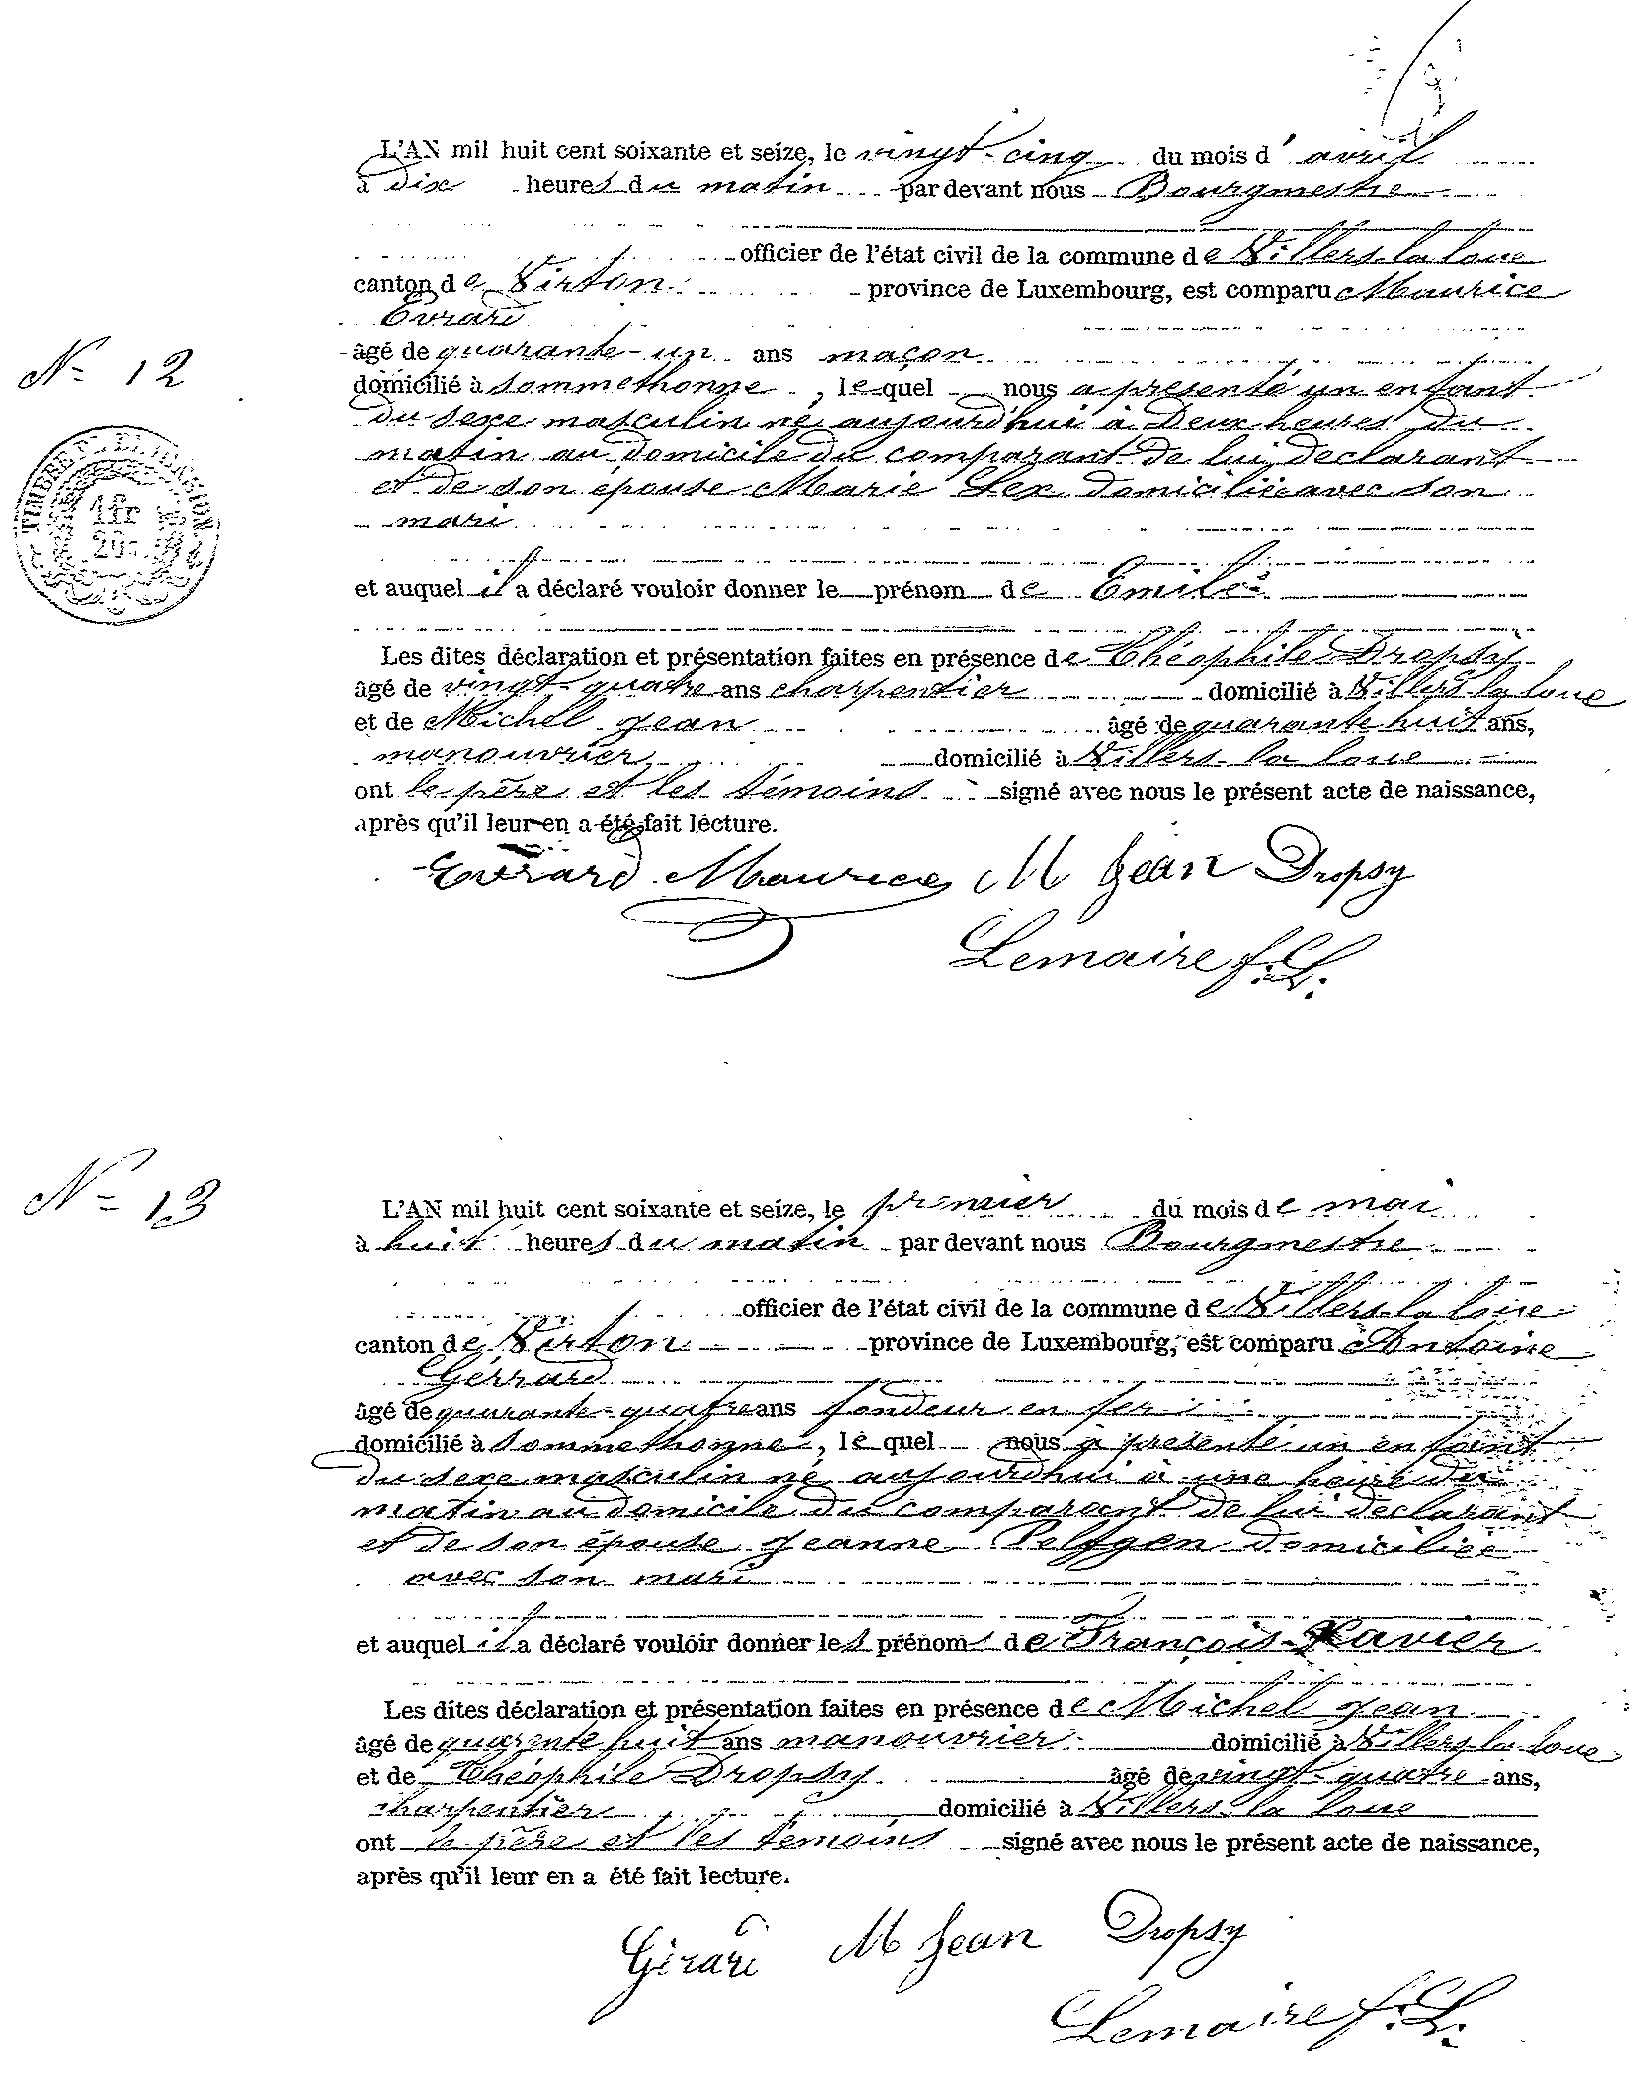 L'AN mil huit cent soixante et seize, le vingt-cinq du mois d'avril
à dix heures du matin par devant nous Bourgmestre
officier de l'état civil de la commune de Villers-la-loue
canton de Virton province de Luxembourg, est comparu Maurice
Evrard
âgé de quarante-un ans maçon
N° 12
domicilié à Sommethonne, lequel nous a présenté un enfant
du sexe masculin né aujourd'hui à Deux heures du
matin au domicile du comparant de lui déclarant
et de son épouse Marie Lex domiciliée avec son
mari
TIMBRE EXTENSION
1 fr
20 c.
et auquel il a déclaré vouloir donner le prénom de Emile
Les dites déclaration et présentation faites en présence de Théophile Dropsy
âgé de vingt-quatre ans charpentier domicilié à Villers-la loue
et de Michel Jean âgé de quarante huit ans,
manouvrier domicilié à Villers-la loue
ont le père et les témoins signé avec nous le présent acte de naissance,
après qu'il leur en a été fait lecture.
Evrard Maurice M Jean Dropsy
Lemaire f. L.
N° 13
L'AN mil huit cent soixante et seize, le premier du mois de mai
à huit heures du matin par devant nous Bourgmestre
officier de l'état civil de la commune de Villers-la loue
canton de Virton province de Luxembourg, est comparu Antoine
Gérrard
âgé de quarante-quatre ans fondeur en fer
domicilié à Sommethonne, lequel nous a présenté un enfant
du sexe masculin né aujourd'hui à une heure du
matin au domicile du comparant de lui déclarant
et de son épouse Jeanne domiciliée
avec son mari
et auquel il a déclaré vouloir donner les prénoms de François-Xavier
Les dites déclaration et présentation faites en présence de Michel Jean
âgé de quarante huit ans manouvrier domicilié à Villers la loue
et de Théophile Dropsy âgé de vingt-quatre ans,
charpentier domicilié à Villers-la loue
ont le père et les témoins signé avec nous le présent acte de naissance,
après qu'il leur en a été fait lecture.
Gérard M Jean Dropsy
Lemaire f. L.